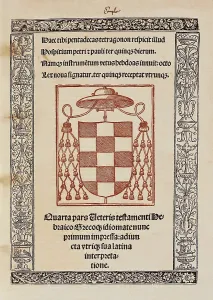 Hec tibi pentadecas tetragonon respicit illud
Hospitium petri ⁊ pauli ter quinqꝫ dierum.
Namqꝫ instrumẽtũ vetus hebdoas innuit: octo
Lex noua signatur. ter quinqꝫ receptat vtrunqꝫ.
Quarta pars Veteris testamenti He
braico Grecoqꝫ idiomate nunc
primum impressa: adiun
cta vtriqꝫ sua latina
interpreta
tione.